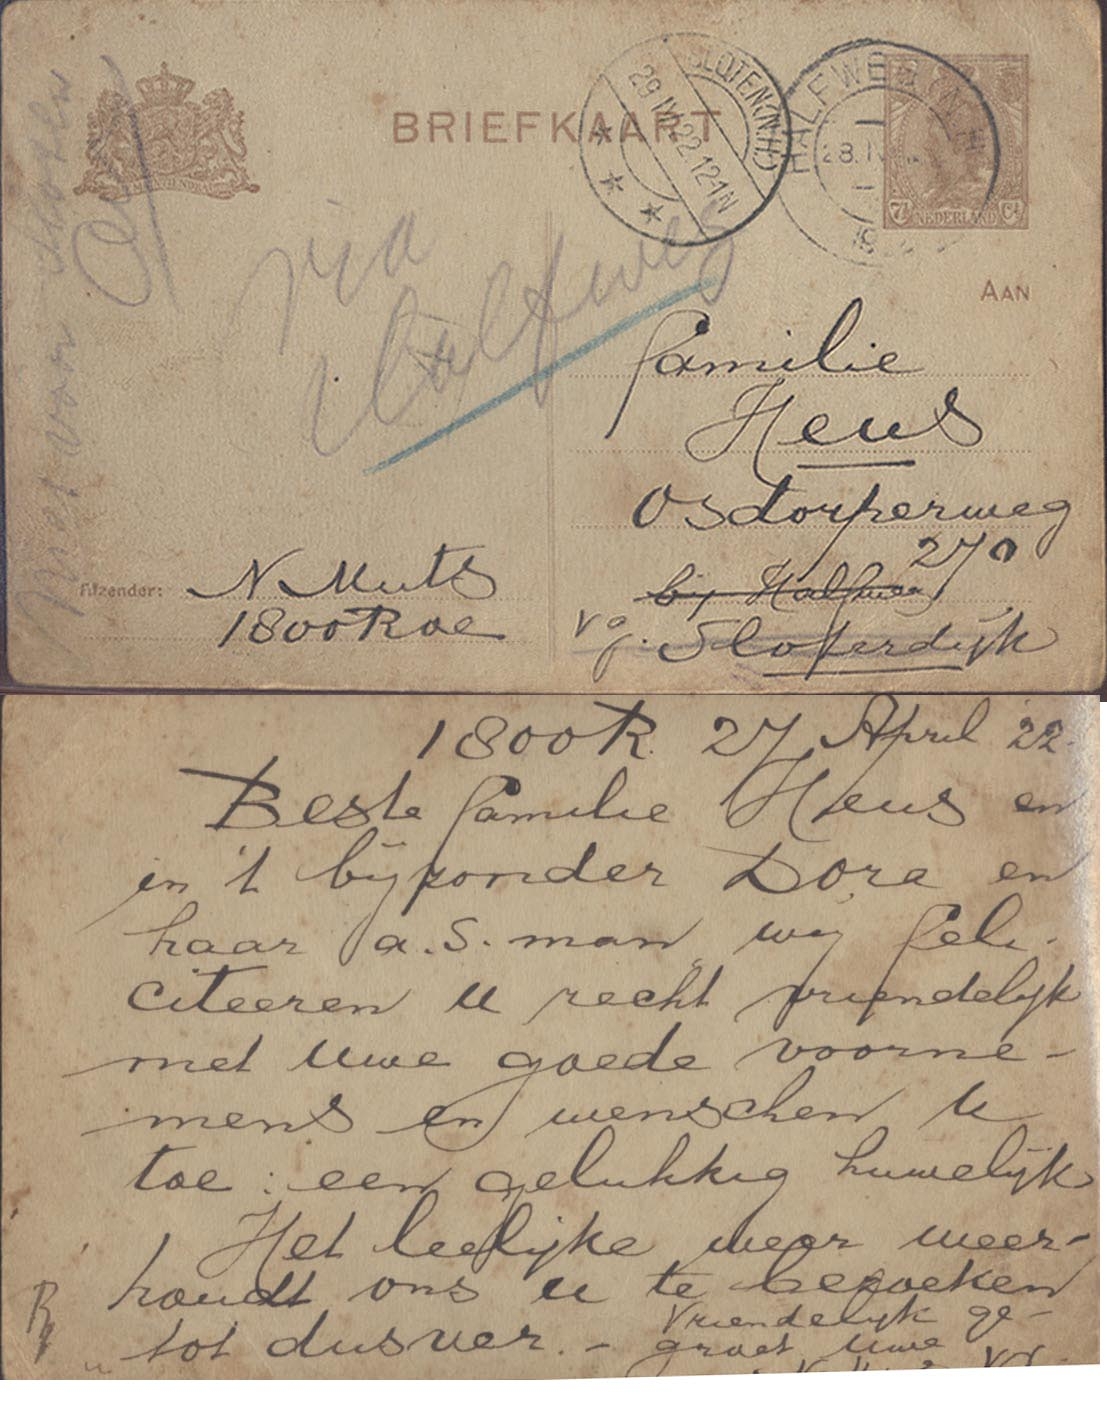 BRIEFKAART
SLOTEN (N.H.)
29 IV 22 12-1 N
HALFWEG (N.H.)
28.IV
7½ NEDERLAND Ct
via
Halfweg
Niet voor
AAN
Familie
Heus
Osdorperweg
270
bij Halfweg
Sloterdijk
Afzender: N Muts
1800 Roe
1800 R. 27 April '22.
Beste familie Heus en
in 't bijzonder Dora en
haar a.s. man, wij feli-
citeeren u recht vriendelijk
met Uwe goede voorne-
mens en wenschen u
toe: een gelukkig huwelijk
Het leelijke weer weer-
houdt ons u te bezoeken
tot dusver. - Vriendelijk ge-
groet Uwe